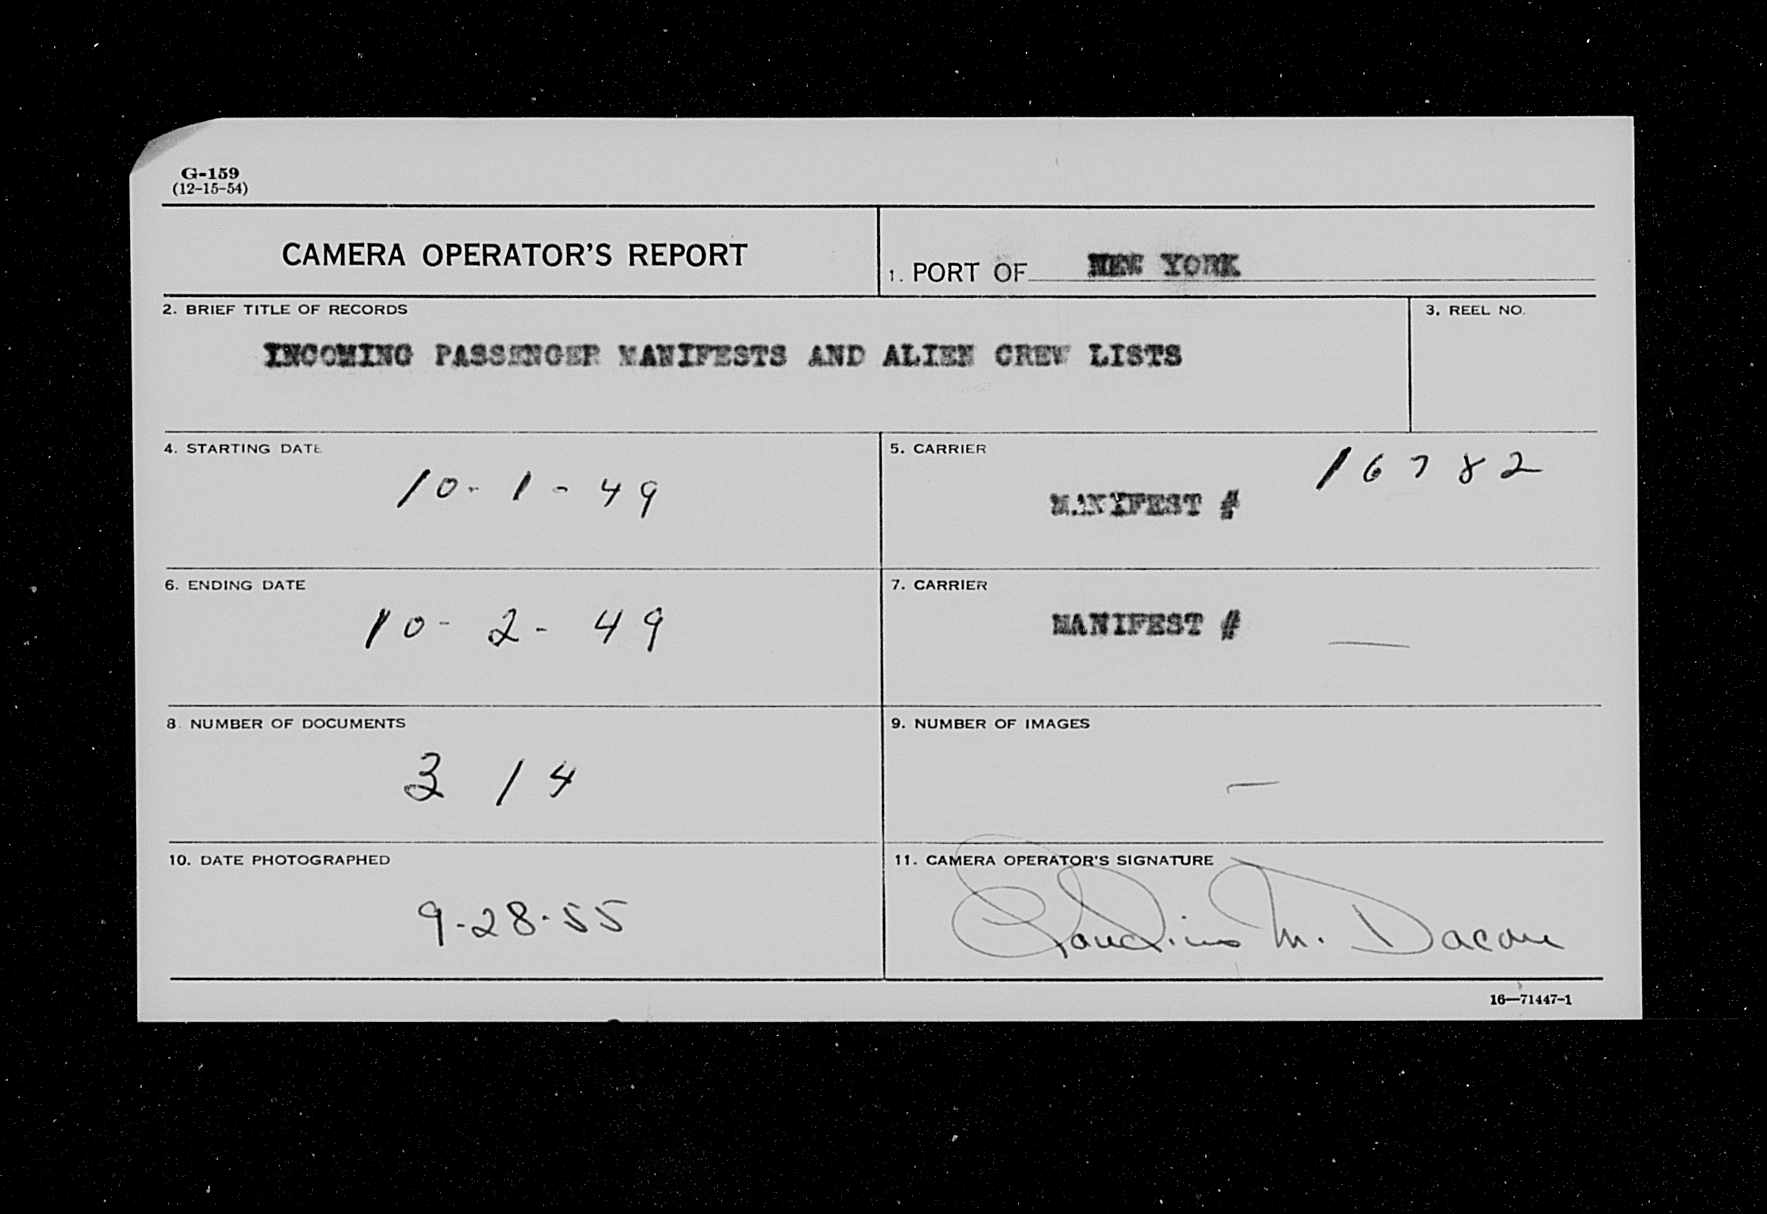 G-159
(12-15-54)
CAMERA OPERATOR'S REPORT
1. PORT OF NEW YORK
2. BRIEF TITLE OF RECORDS
INCOMING PASSENGER MANIFESTS AND ALIEN CREW LISTS
3. REEL NO.
4. STARTING DATE
10-1-49
5. CARRIER
MANIFEST # 16782
6. ENDING DATE
10-2-49
7. CARRIER
MANIFEST # —
8. NUMBER OF DOCUMENTS
314
9. NUMBER OF IMAGES
—
10. DATE PHOTOGRAPHED
9-28-55
11. CAMERA OPERATOR'S SIGNATURE
M.
16—71447-1